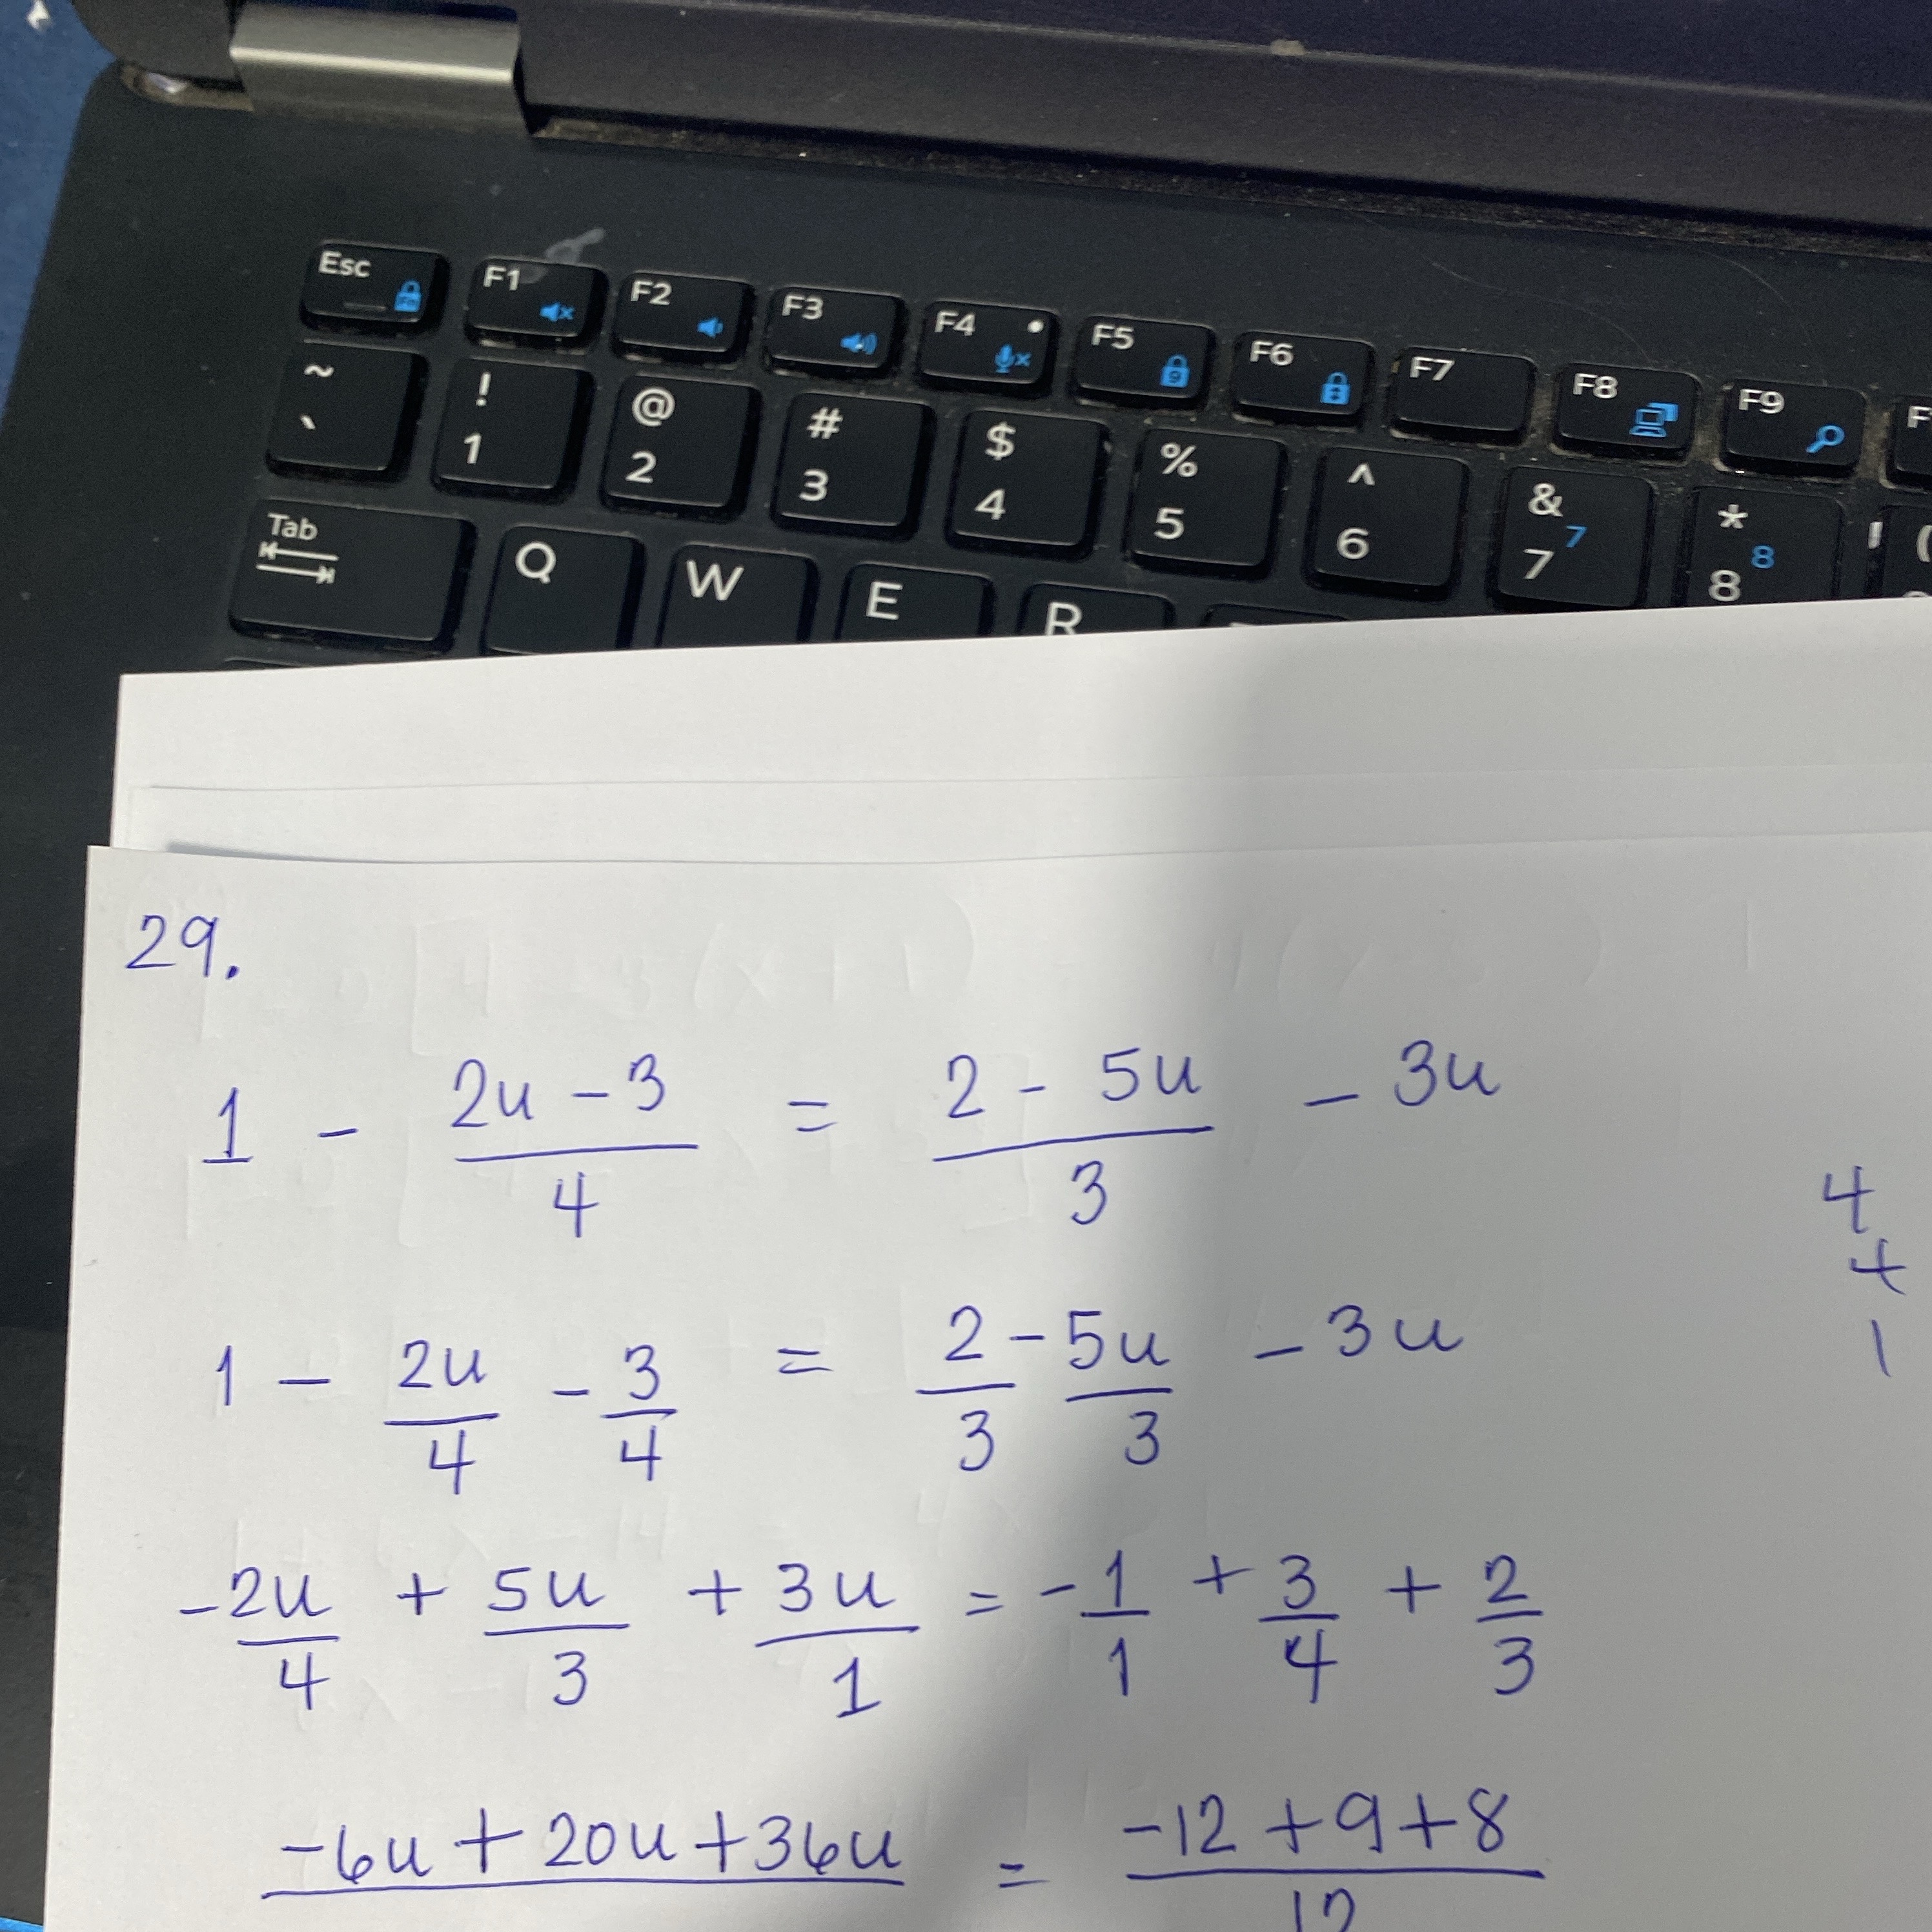 Esc F1 F2 F3 F4 F5 F6 F7 F8 F9 F
~ ! @ # $ % ^ & * (
` 1 2 3 4 5 6 7 7 8 8
Tab Q W E R
29.
1 - (2u - 3)/4 = (2 - 5u)/3 - 3u
4
+
1
1 - 2u/4 - 3/4 = 2/3 - 5u/3 - 3u
-2u/4 + 5u/3 + 3u/1 = -1/1 + 3/4 + 2/3
-6u + 20u + 36u = (-12 + 9 + 8)/12